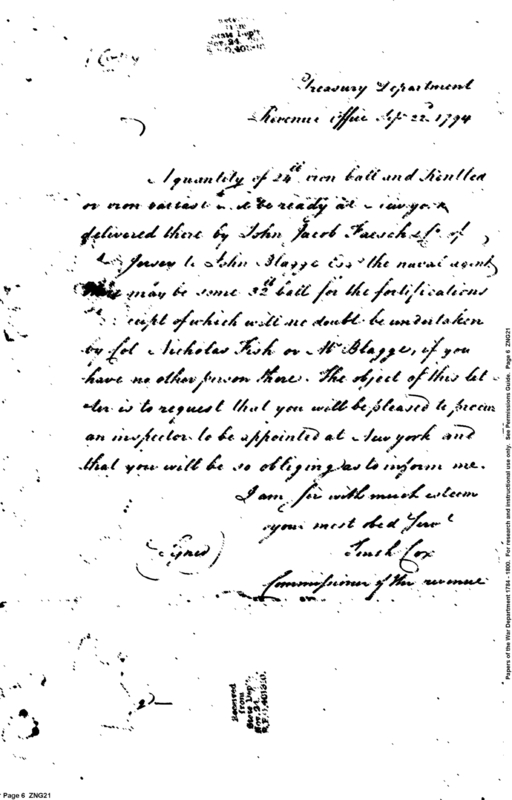 (Copy)
Received
from
State Dep't.
Nov. 24
R.P.O. 401820.
Treasury Department
Revenue Office Sep 22d 1794
A quantity of 24lb iron ball and Kentled
or iron ballast will be ready at New york
delivered there by John Jacob Faesch & Co. of
Jersey to John Blagge Esqr the naval agent
There may be some 32lb ball for the fortifications
receipt of which will no doubt be undertaken
by Col Nicholas Fish or Mr Blagge, if you
have no other person there. The object of this let
ter is to request that you will be pleased to procure
an inspector to be appointed at New york and
that you will be so obliging as to inform me.
I am Sir with much esteem
your most obed Servt
(Signed) Tench Cox
Commissioner of the revenue
2
Received
from
State Dep't.
Nov. 24
R.P.O. 401820.
Papers of the War Department 1784 - 1800. For research and instructional use only. See Permissions Guide. Page 6 ZNG21
Page 6 ZNG21